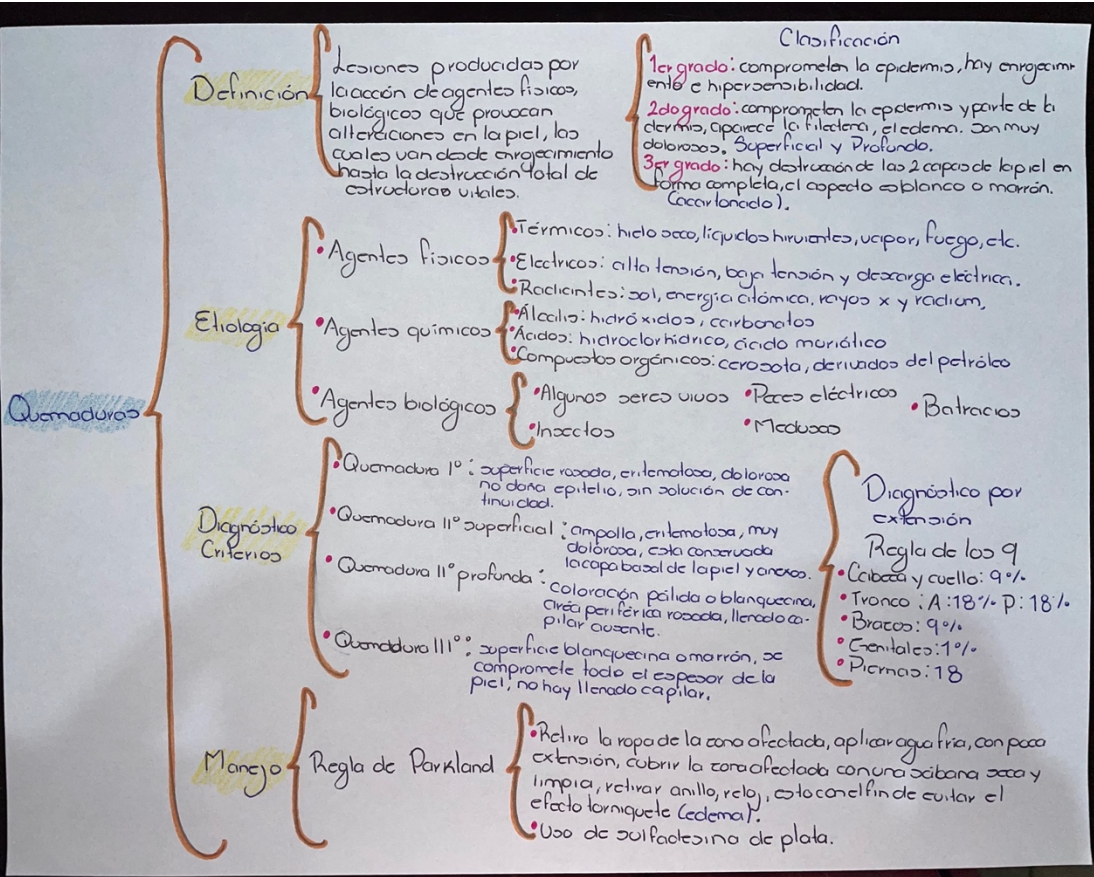 Quemaduras
Definición
Lesiones producidas por
la acción de agentes físicos,
biológicos que provocan
alteraciones en la piel, las
cuales van desde enrojecimiento
hasta la destrucción total de
estructuras vitales.
Clasificación
1er grado: comprometen la epidermis, hay enrojecimi-
ento e hipersensibilidad.
2do grado: comprometen la epidermis y parte de la
dermis, aparece la flictena, el edema. Son muy
dolorosos. Superficial y Profundo.
3er grado: hay destrucción de las 2 capas de la piel en
forma completa, el aspecto es blanco o marrón.
(acartonado).
Etiología
• Agentes físicos
• Térmicos: hielo seco, líquidos hirvientes, vapor, fuego, etc.
• Electricos: alta tensión, baja tensión y descarga eléctrica.
• Radiantes: sol, energía atómica, rayos x y radium.
• Agentes químicos
• Álcalis: hidróxidos, carbonatos
• Ácidos: hidroclorhídrico, ácido muriático
• Compuestos orgánicos: cerosota, derivados del petróleo
• Agentes biológicos
• Algunos seres vivos • Peces eléctricos • Batracios
• Insectos • Medusas
Diagnóstico
Criterios
• Quemadura I°: superficie rosada, eritematosa, dolorosa
no daña epitelio, sin solución de con-
tinuidad.
• Quemadura II° superficial: ampolla, eritematosa, muy
dolorosa, esta conservada
la capa basal de la piel y anexos.
• Quemadura II° profunda:
coloración pálida o blanquecina,
área periférica rosada, llenado ca-
pilar ausente.
• Quemaddura III°: superficie blanquecina o marrón, se
compromete todo el espesor de la
piel, no hay llenado capilar.
Diagnóstico por
extensión
Regla de los 9
• Cabeza y cuello: 9%
• Tronco: A: 18% P: 18%
• Brazos: 9%
• Genitales: 1%
• Piernas: 18
Manejo
Regla de Parkland
• Retira la ropa de la zona afectada, aplicar agua fria, con poca
extensión, cubrir la zona afectada con una sábana seca y
limpia, retirar anillo, reloj, esto con el fin de evitar el
efecto torniquete (edema).
• Uso de sulfadesina de plata.